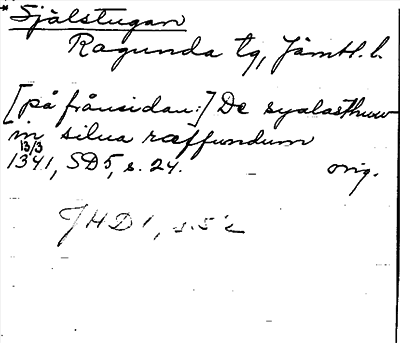 * Själstugan
Ragunda tg, Jämtl. l.
[på frånsidan:] De syalasthuw
in silua ræffundum
13/3
1341, SD5, s. 24. orig.
JHD 1, s. 52